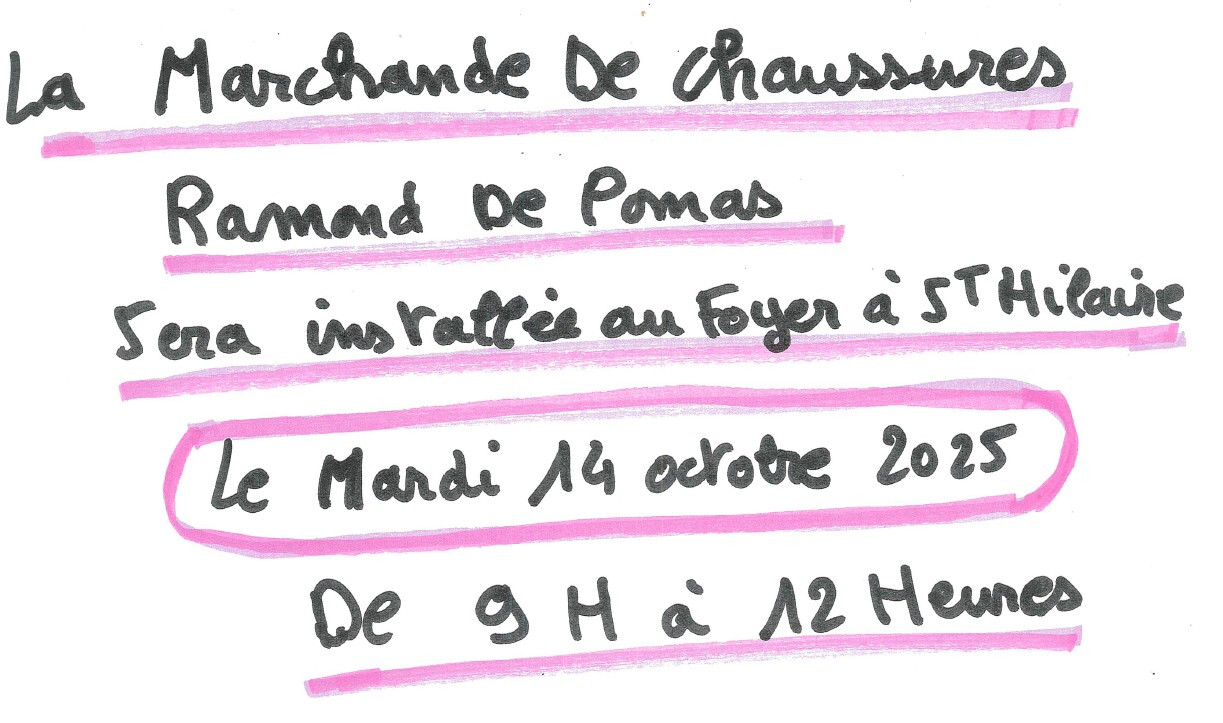 La Marchande De Chaussures
Ramond De Pomas
Sera installée au Foyer à ST Hilaire
Le Mardi 14 octobre 2025
De 9 H à 12 Heures